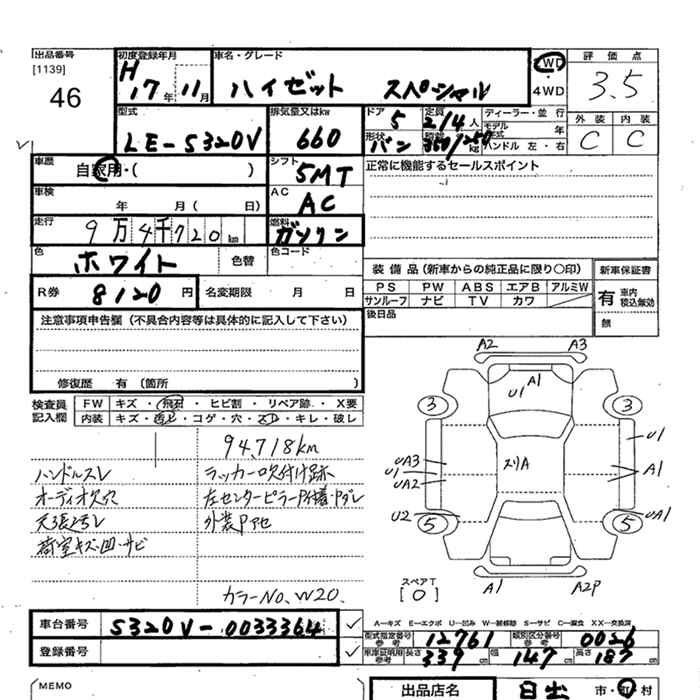 出品番号 [1139] 46
初度登録年月 H 17年 11月
車名・グレード ハイゼット スペシャル
2WD 4WD
評価点 3.5
型式 LE-S320V
排気量又はkw 660
ドア 5
定員 2/4人
形状 バン
積載 350/250kg
ディーラー・並行
モデル年式 年
ハンドル 左・右
外装 C 内装 C
車歴 自家用・( )
シフト 5MT
正常に機能するセールスポイント
車検 年 月( 日)
AC AC
走行 9万4千720km
燃料 ガソリン
色 ホワイト 色替
色コード
R券 8120円 名変期限 月 日
装備品(新車からの純正品に限り〇印)
PS PW ABS エアB アルミW
サンルーフ ナビ TV カワ
新車保証書
有 車内 税込無効
無
後日品
注意事項申告欄(不具合内容等は具体的に記入して下さい)
修復歴 有(箇所 )
検査員記入欄
FW キズ・飛石・ヒビ割・リペア跡・X要
内装 キズ・汚レ・コゲ・穴・スレ・キレ・破レ
94,718km
ハンドルスレ ラッカー吹付け跡
オーディオ欠穴 左センターピラーP付着・Pダレ
天張汚レ 外装Pアセ
荷室キズ・凹・サビ
カラーNo, W20.
A2 A3
U1 A1
3 3
UA3 U1 UA2
スリA
U1 A1
U2 UA1
5 5
A1 A2P
スペアT [0]
A―キズ E―エクボ U―凹み W―補修跡 S―サビ C―腐食 XX―交換済
車台番号 S320V-0033364
登録番号
型式指定番号 参考 12761
類別区分番号 参考 0026
車庫証明用 参考 長さ 339cm 幅 147cm 高さ 187cm
MEMO
出品店名 日出 市・町村